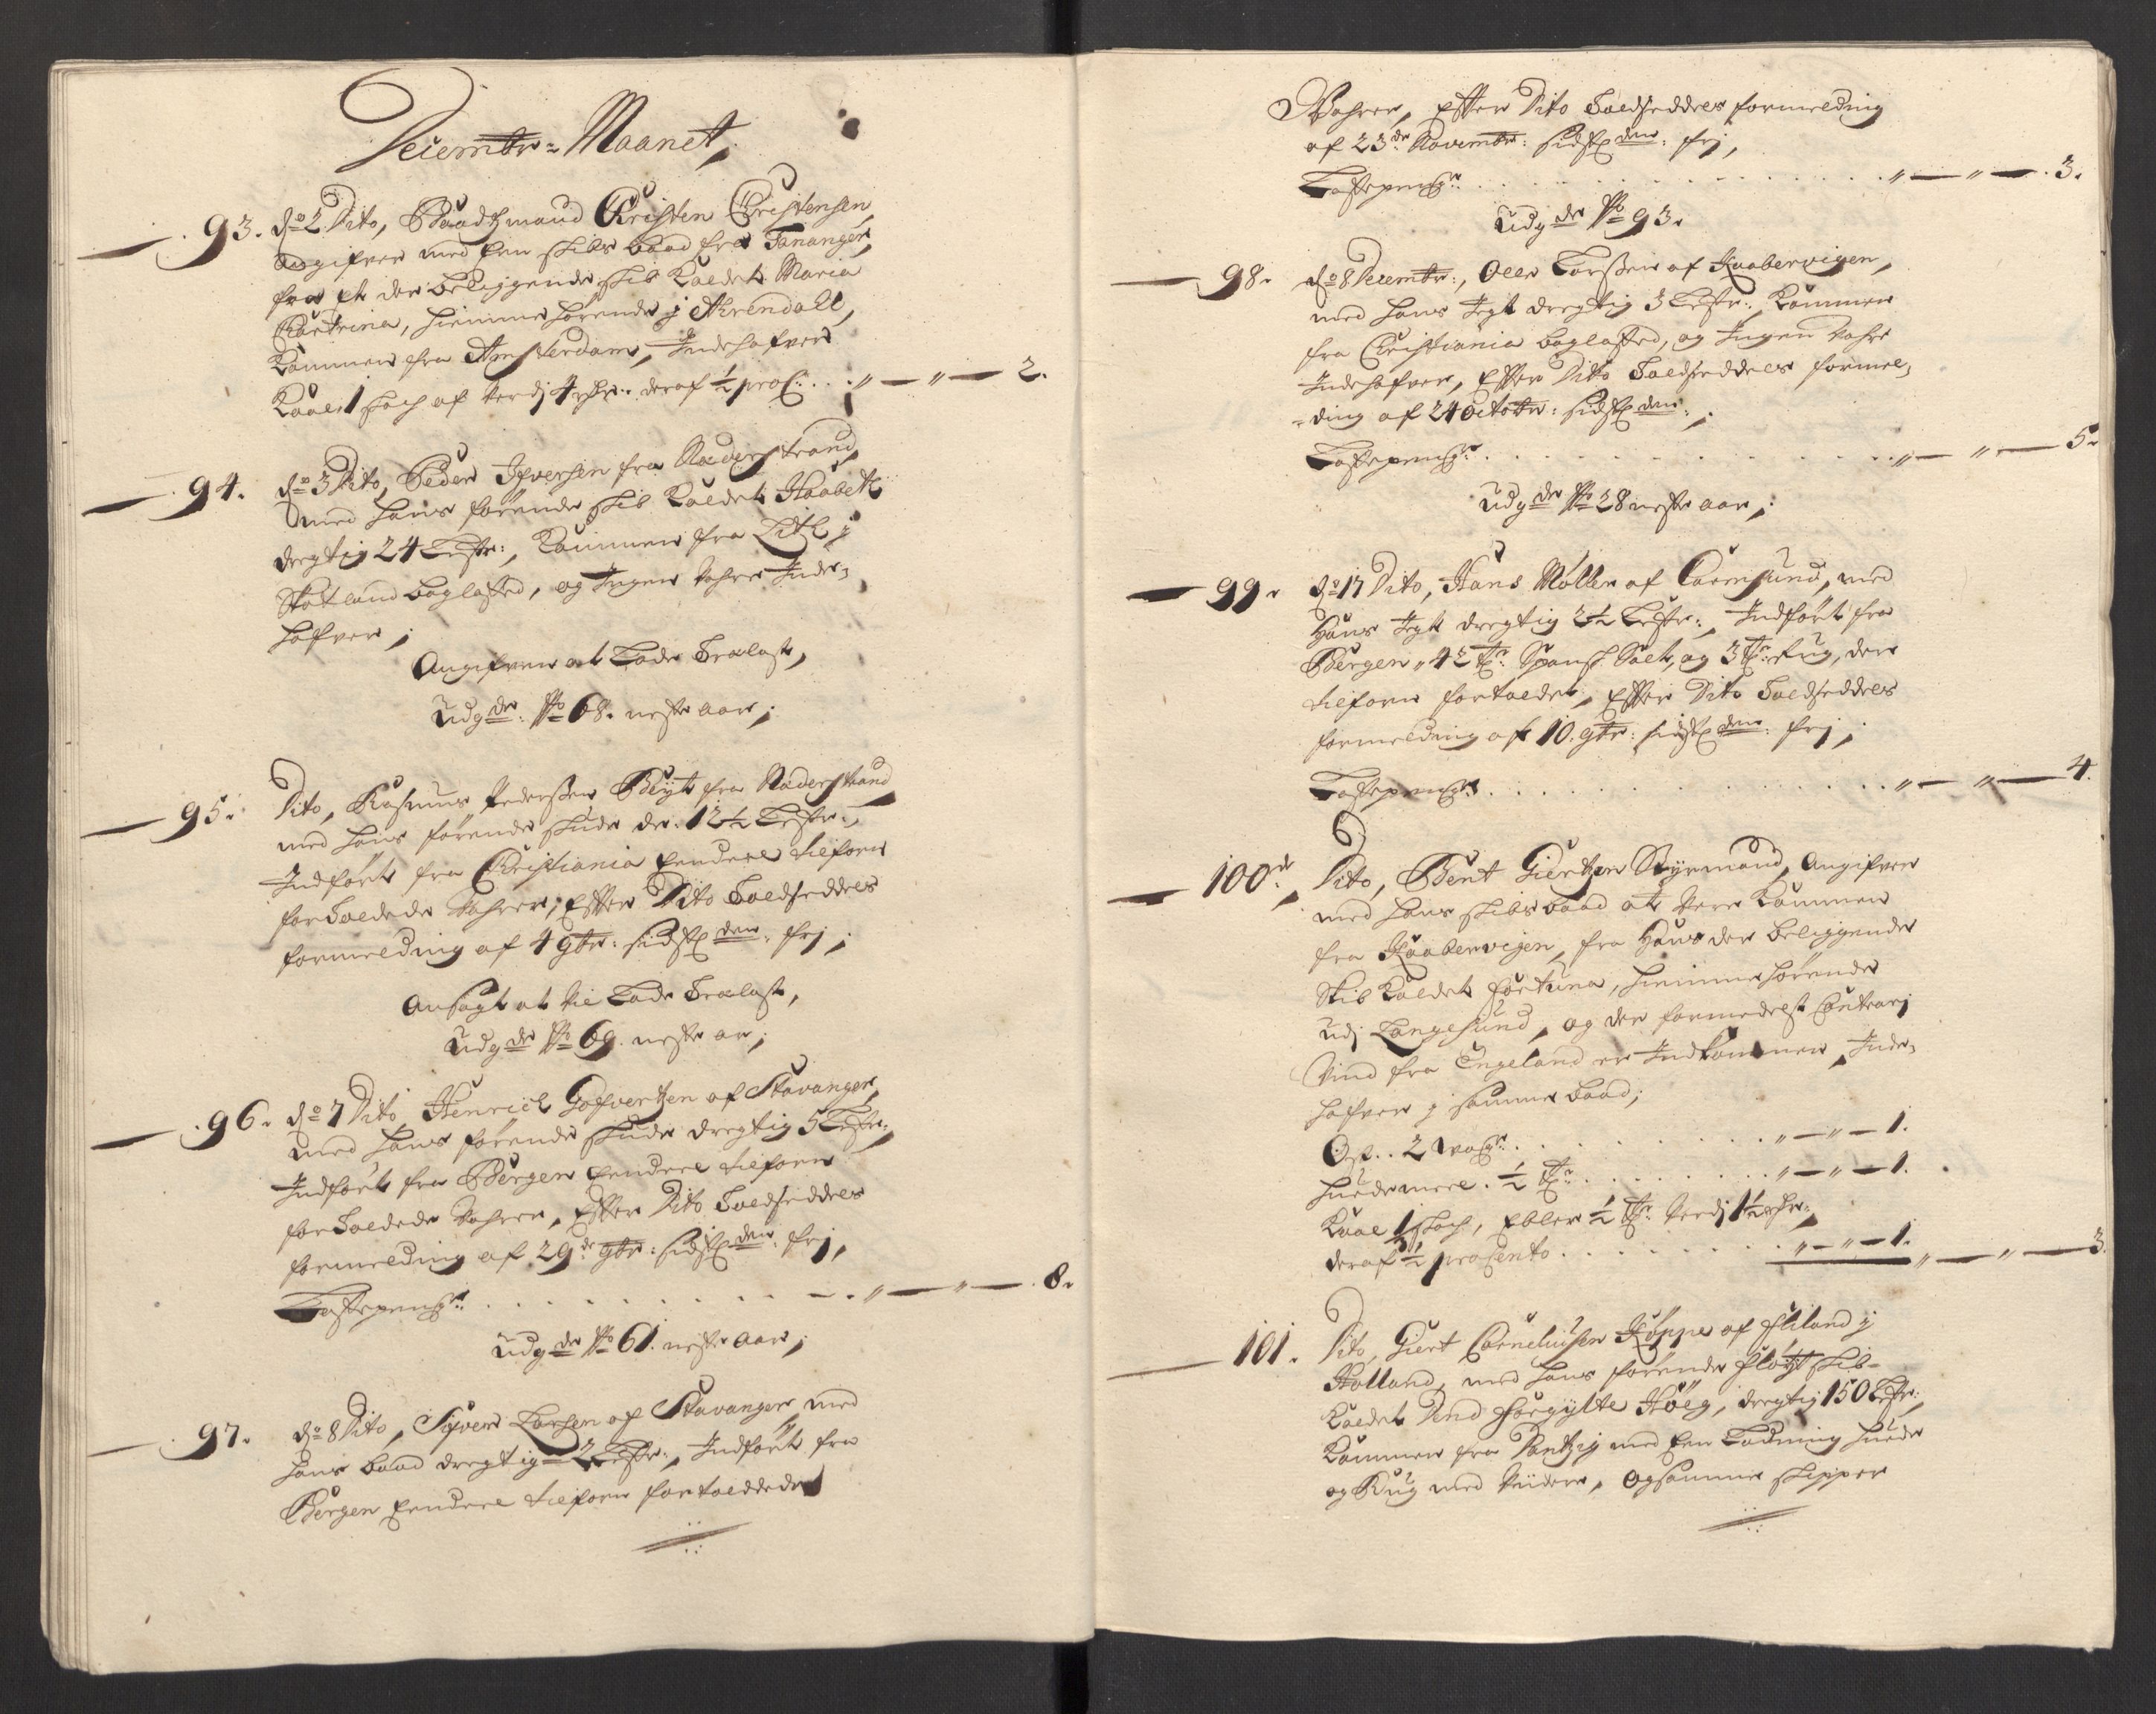 Decembr: Maanet,
93. dn 2 Dito, Baadtzmand Christen Christensen
Angifver med een skibs baad fra Tananger,
fra et der beliggende skib kaldet Maria
Cathrina, hiemmehørende j Arrendall,
kommen fra Amsterdam, Indehafver
kaal 1 skoch af verdj 4 rdr: deraf ½ proC: . . . „ — „ — 2.
94. dn 3 Dito, Peder Ifversen fra Naderstrand,
med hans førende skib kaldet Haabet
dregtig 24 Lester:, kommen fra Lith j
Skotland baglasted, og Ingen vahre Inde-
hafver;
Angifven at Lade Trælast,
Udgde: No 68. neste aar;
95. Dito, Rasmus Pedersen Bleyt fra Naderstrand
med hans førende skude dr. 12½ Lester:,
Indført fra Christiania Eendeel tilforn
fortoldede vahrer, Efter Dito Toldseddels
formelding af 4 9br: sidst den: frj;
Ansagt at vil Lade Trælast,
Udgde No 69. neste ar;
96. dn 7 Dito, Henrich Gofvertzen af Stavanger,
med hans førende skude dregtig 5 Lester:,
Indført fra Bergen Eendeel tilforn
fortoldede vahrer, Efter Dito Toldseddels
formelding af 29de 9br: sidst den: frj,
Lastepenge . . . . . . „ — „ — 8.
Udgde No 61. neste aar;
97. dn 8 Dito, Sifver Larsen af Stavanger med
hans baad dregtig 2 Lester:, Indført fra
Bergen Eendeel tilforn fortoldede
Vahrer, Efter Dito Toldseddels formelding
af 23de Novembr: sidst den: frj,
Lastepenge . . . . . . „ — „ — 3.
Udgde No 93.
98. dn 8 Decembr:, Oele Larsen af Kaabervigen,
med hans Jegt dregtig 3 Lester:, kommen
fra Christiania baglasted, og Ingen vahre
Indehafver, Efter Dito Toldseddels formel-
ding af 24 Octobr: sidst den:.
Lastepenge . . . . . . „ — „ — 5.
Udgde No 28 neste aar;
99. dn 17 Dito, Hans Møller af Carmsund, med
Hans Jegt dregtig 2½ Lester:, Indført fra
Bergen „ 42 Tr: Spansk Salt, og 3 Tr: Rug, der
tilforn fortoldet, Efter Dito Toldseddels
formelding af 10. 9br: sidst den: frj;
Lastepenge . . . . . . „ — „ — 4.
100de Dito, Bent Giertzen Styrmand, Angifver
med hans skibs baad at vere kommen
fra Kaabervigen, fra Hans der beliggende
Skib kaldet Fortuna, hiemmehørende
udj Langesund, og der formedelst Contrarj
Vind fra Engeland er Indkommen, Inde-
hafver j samme baad;
Ost . . 2 voger . . . . . . „ — „ — 1.
hvedemeel . ½ Tr . . . . . . „ — „ — 1.
Kaal 1 skoch, Ebler ½ Tr: verdj 1½ rdr:
deraf ½ procento . . . . . . „ — „ — 1. „ — „ — 3.
101. Dito, Giert Cornelissen Køppe af Flieland j
Holland, med hans førende Fløyt skib
kaldet Vend Forgylte Høeg, dregtig 150 Lester:,
kommen fra Dantzig med Een Ladning hvede
og Rug med videre, og samme skipper